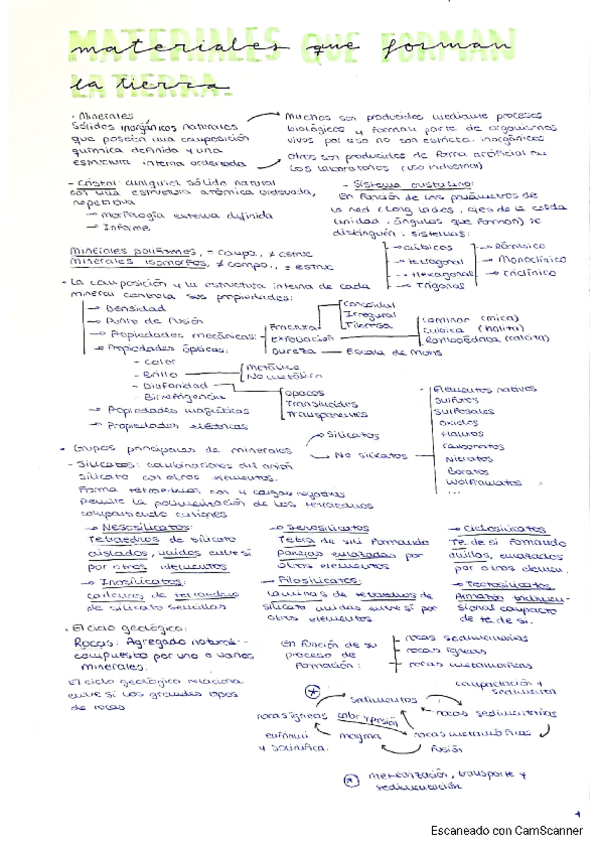 MATERIALES QUE FORMAN
materiales que forman
LA TIERRA:
la tierra
· Minerales
Sólidos inorgánicos naturales
que poseen una composición
química definida y una
estructura interna ordenada
Muchos son producidos mediante procesos
biológicos y forman parte de organismos
vivos por eso no son estrict. inorgánicos
otros son producidos de forma artificial en
los laboratorios (uso industrial)
- Cristal: cualquier sólido natural
con una estructura atómica ordenada,
repetitiva
→ morfología externa definida
→ Informe
- Sistema cristalino:
En función de los parámetros de
la red (long lados, ejes de la celda
unidad, ángulos que forman) se
distinguen sistemas:
→ cúbicos
→ tetragonal
→ Hexagonal
→ Trigonal
→ Rómbico
→ Monoclínico
→ triclínico
Minerales polimorfos, = compo., ≠ estruc
Minerales isomorfos, ≠ compo., = estruc
· La composición y la estructura interna de cada
mineral controla sus propiedades:
→ Densidad
→ Punto de fusión
→ Propiedades mecánicas:
Fractura
Concoidal
Irregular
Fibrosa
exfoliación
Laminar (mica)
cúbica (halita)
Romboédrica (calcita)
Dureza — Escala de Mohs
→ Propiedades ópticas:
- Color
- Brillo
Metálico
No metálico
- Diafanidad
Opacos
Translúcidos
Transparentes
- Birrefringencia
→ Propiedades magnéticas
→ Propiedades eléctricas
· Grupos principales de minerales
→ Silicatos
→ No silicatos
· Elementos nativos
Sulfuros
Sulfosales
Óxidos
Haluros
Carbonatos
Nitratos
Boratos
Wolframatos
...
- Silicatos: combinaciones del anión
silicato con otros elementos.
Forma tetraedros con 4 cargas negativas
Permite la polimerización de los tetraedros
compartiendo cationes
→ Nesosilicatos:
Tetraedros de silicato
aislados, unidos entre sí
por otros elementos
→ Sorosilicatos:
Tetra de sili formando
parejas enlazadas por
otros elementos
→ Ciclosilicatos
Te. de si formando
anillos, enlazados
por otros elemen.
→ Inosilicatos:
cadenas de tetraedros
de silicato sencillas
→ Filosilicatos:
Láminas de tetraedros de
silicato unidas entre sí por
otros elementos.
→ Tectosilicatos
Armazón tridimen-
sional compacto
de te. de si.
· El ciclo geológico:
Rocas: Agregado natural
compuesto por uno o varios
minerales.
El ciclo geológico relaciona
entre sí los grandes tipos
de rocas
En función de su
proceso de
formación:
→ rocas sedimentarias
→ rocas ígneas
→ rocas metamórficas
compactación y
sedimento
sedimentos
rocas ígneas
calor y presión
rocas sedimentarias
y solidifica.
magma
rocas metamórficas
fusión
meteorización, transporte y
sedimentación
1
Escaneado con CamScanner